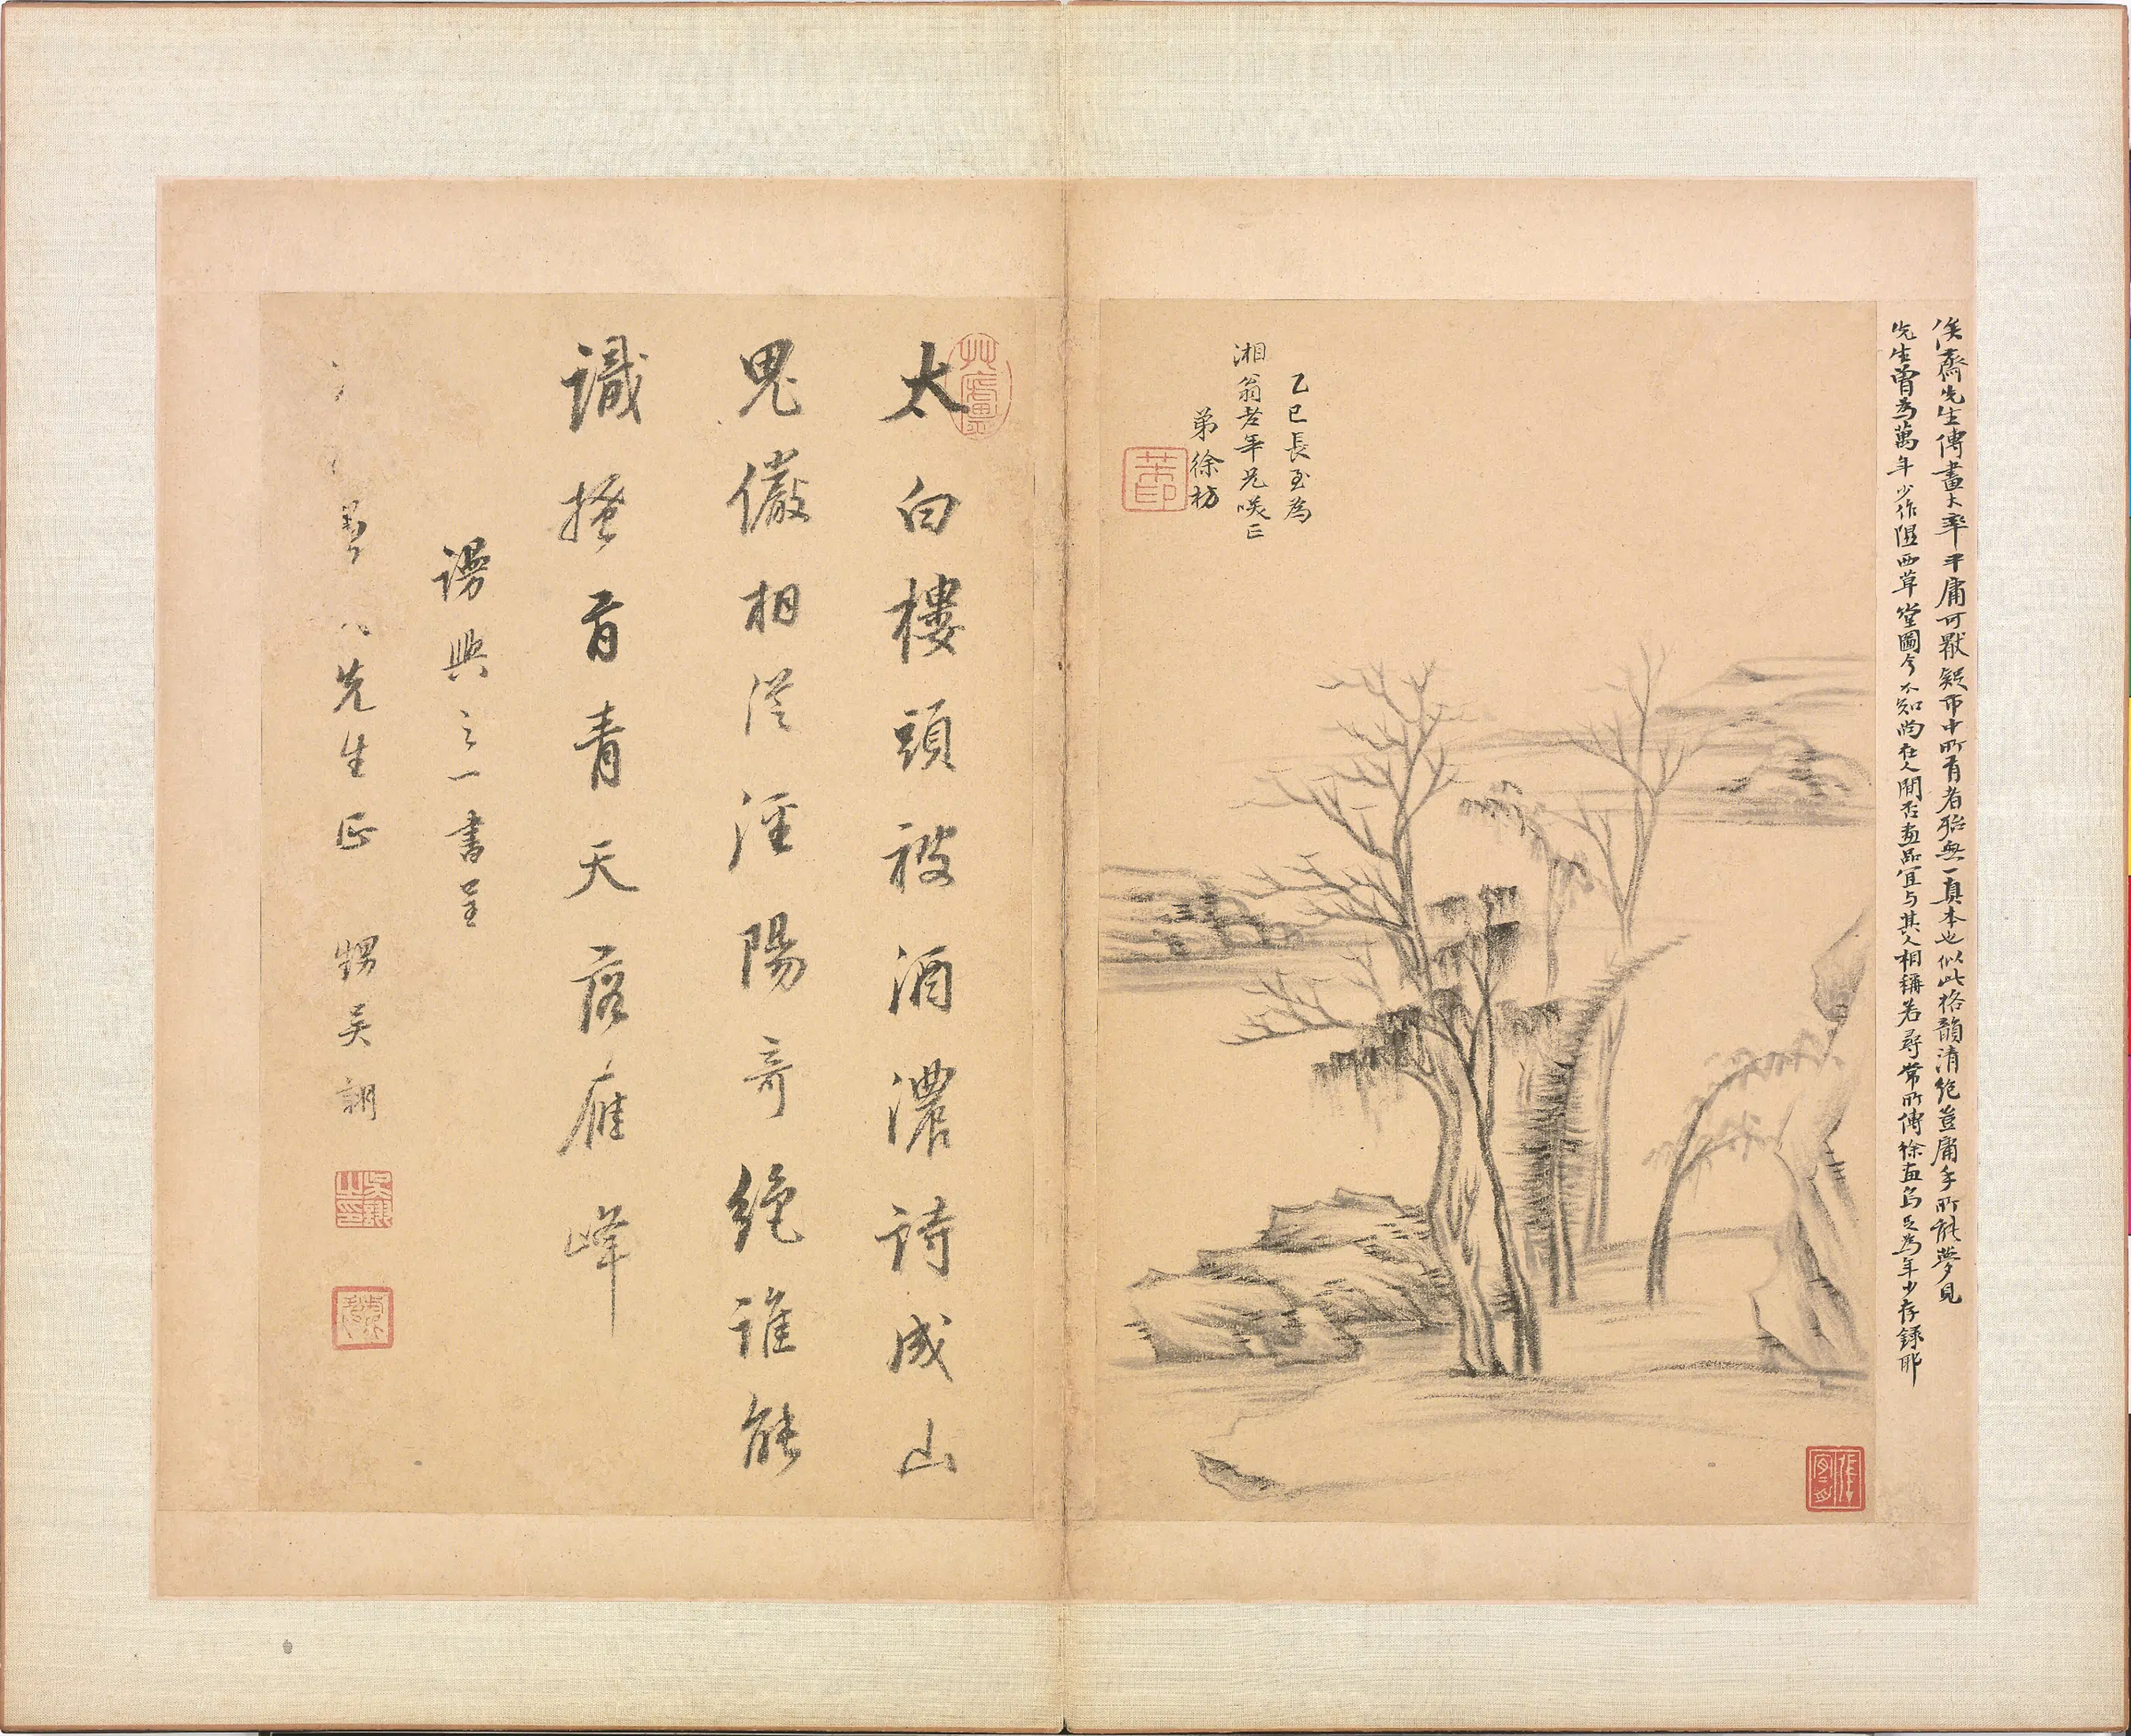 俟齋先生傳畫大率平庸可厭疑市中所有者殆無一真本也似此格韻清絶豈庸手所能夢見
先生曾為萬年少作隰西草堂圖今不知尚在人間否畫品宜与其人相稱若尋常所傳徐畫烏足為年少存録耶
乙巳長至為
湘翁老年兄咲正
弟徐枋
太白樓頭被酒濃詩成山
鬼儼相從涇陽奇絶誰能
識搔首青天落雁峰
謾興之一書呈
先生正 甥吳翽